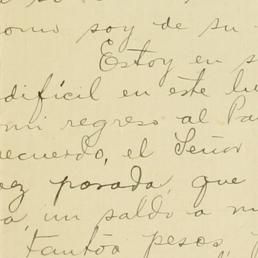 como soy de su
Estoy en s
difícil en este lu
mi regreso al Pa
recuerdo, el Señor
ez pasada, que
a, un saldo a m
tantos pesos,